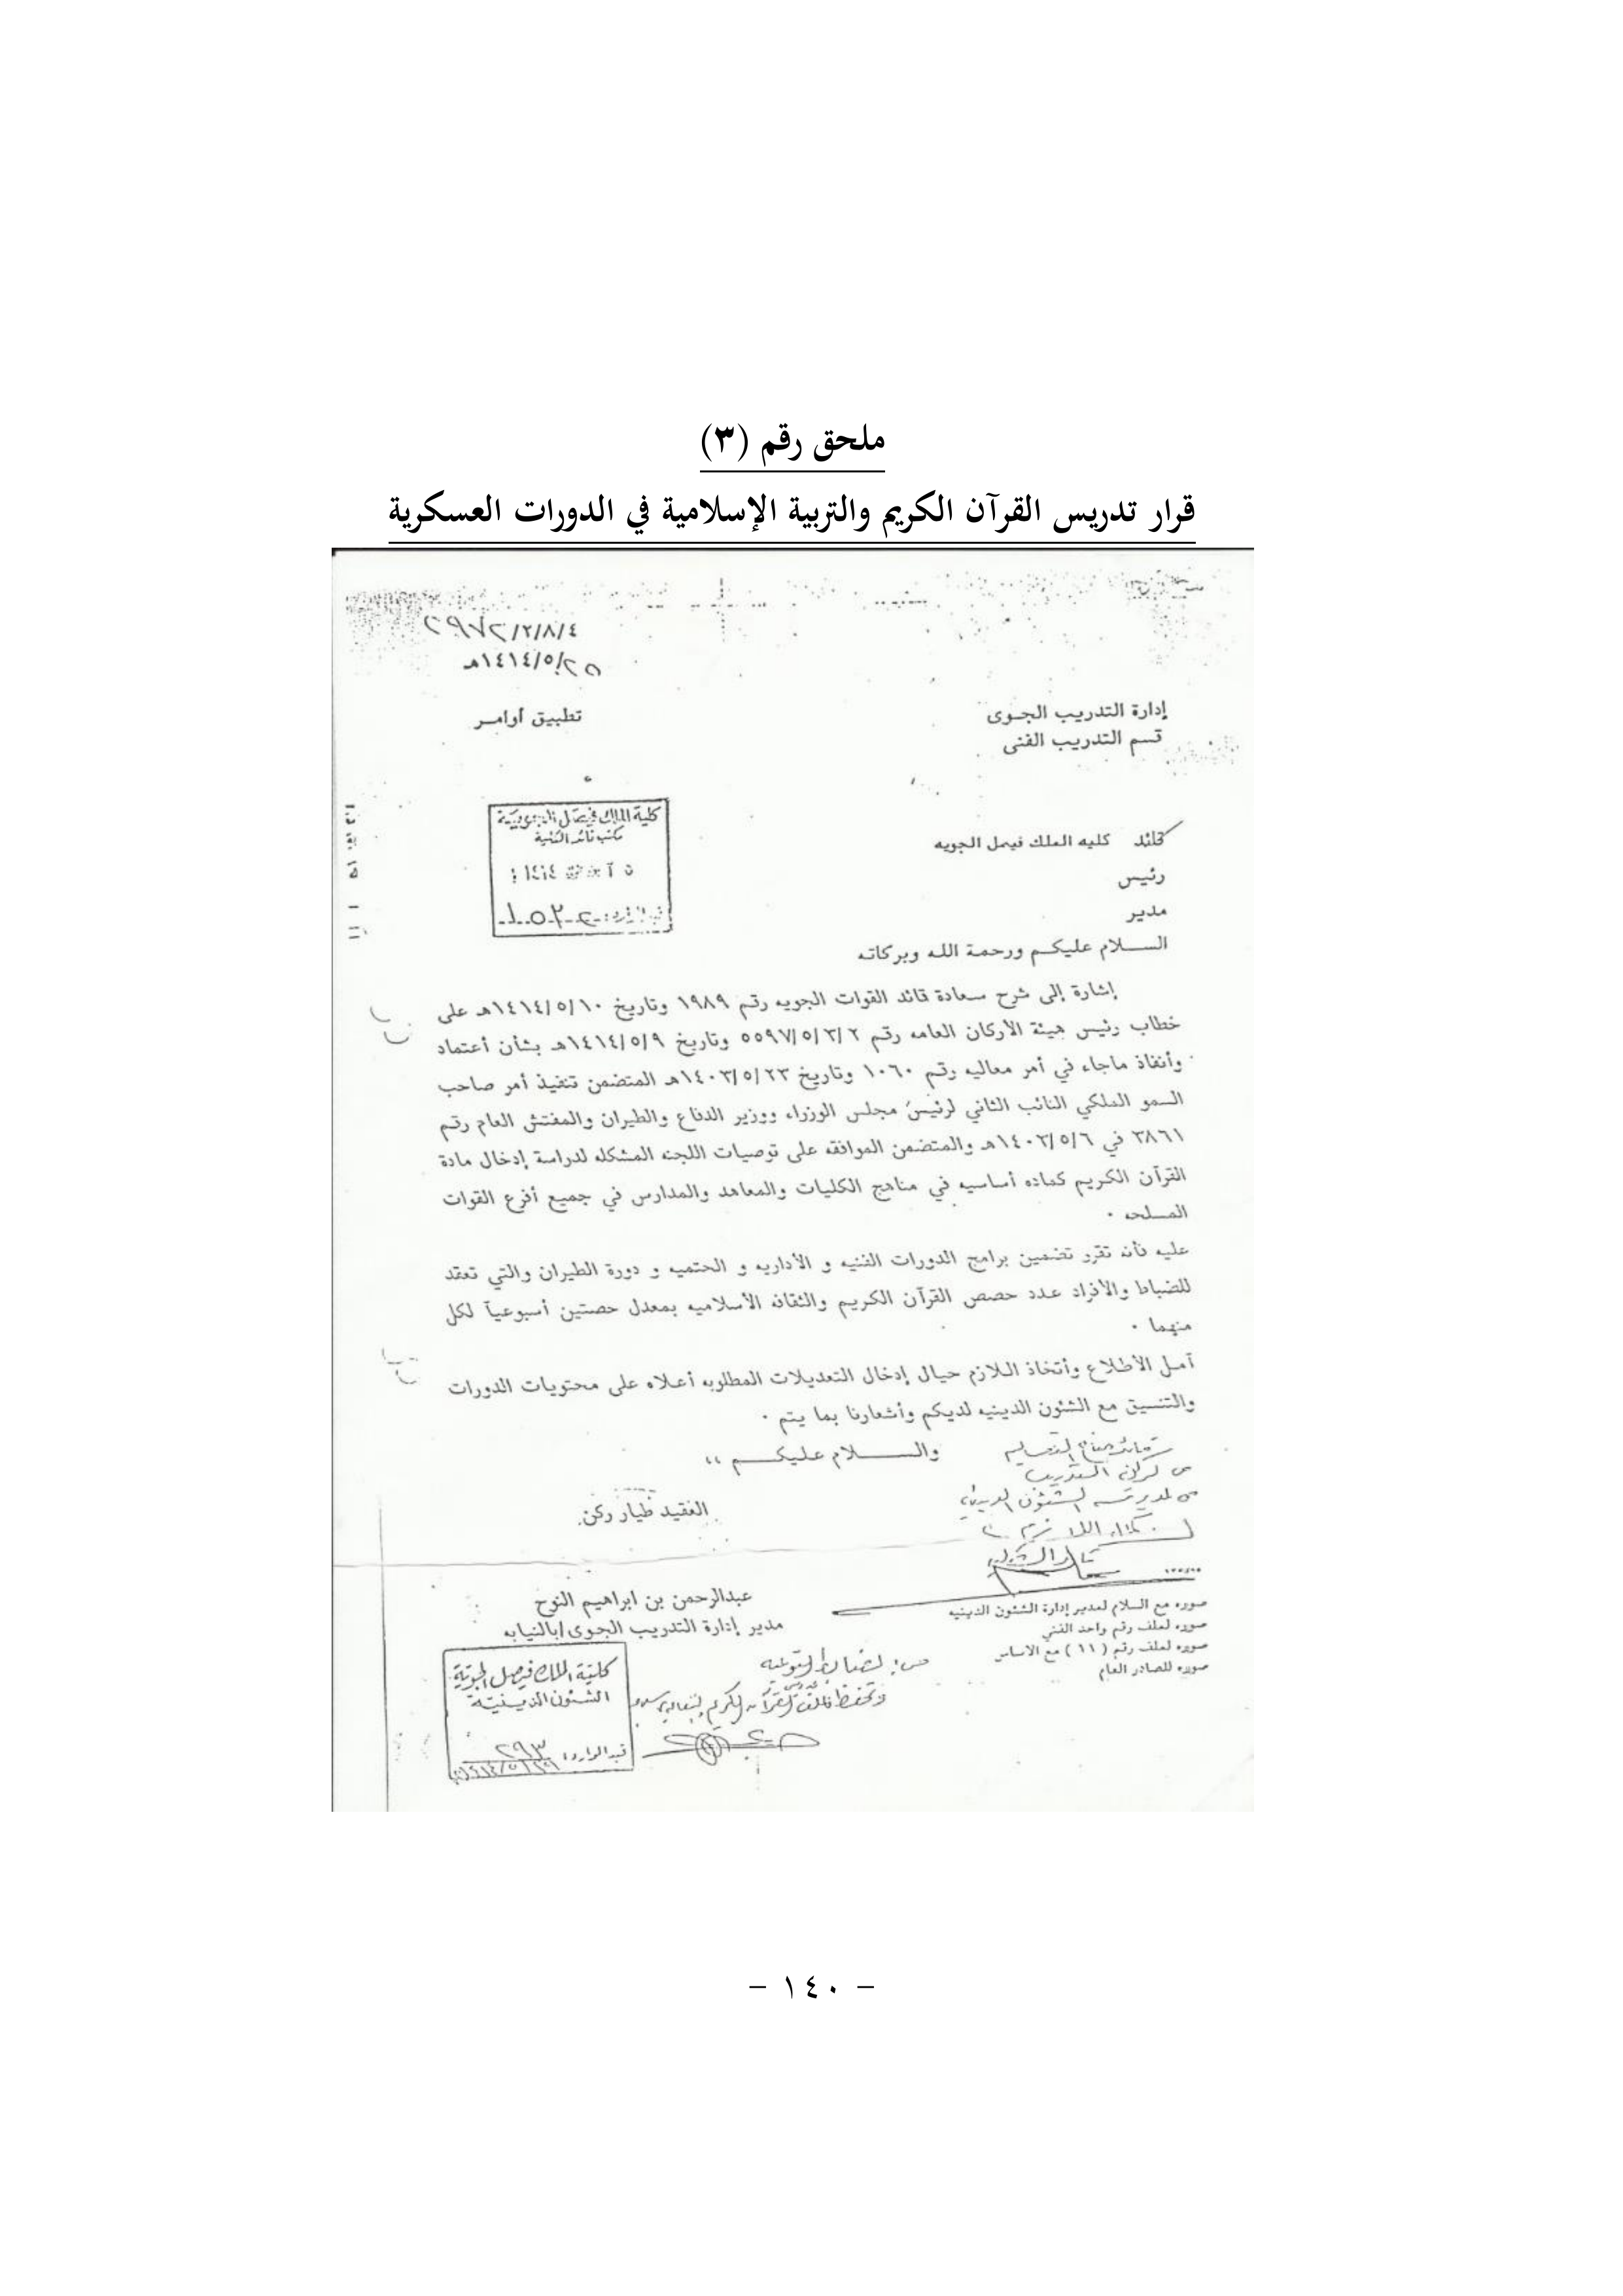 ملحق رقم (٣)
قرار تدريس القرآن الكريم والتربية الإسلامية في الدورات العسكرية
٢٩٧٢/٢/٨/٤
١٤١٤/٥/٢٥هـ
إدارة التدريب الجـوى
تطبيق أوامـر
قسم التدريب الفنى
كلية الملك فيصل الجوية
قائد كليه الملك فيصل الجويه
رئيس
مدير
السـلام عليكـم ورحمـة اللـه وبركاتـه
إشارة إلى شرح سعادة قائد القوات الجويه رقم ١٩٨٩ وتاريخ ١٤١٤/٥/١٠هـ على
خطاب رئيس هيئة الأركان العامه رقم ٥٥٩٧/٥/٣/٢ وتاريخ ١٤١٤/٥/٩هـ بشأن أعتماد
وأنفاذ ماجاء في أمر معاليه رقم ١٠٦٠ وتاريخ ١٤٠٣/٥/٢٣هـ المتضمن تنفيذ أمر صاحب
السمو الملكي النائب الثاني لرئيس مجلس الوزراء ووزير الدفاع والطيران والمفتش العام رقم
٣٨٦١ في ١٤٠٣/٥/٦هـ والمتضمن الموافقه على توصيات اللجنه المشكله لدراسة إدخال مادة
القرآن الكريم كماده أساسيه في مناهج الكليات والمعاهد والمدارس في جميع أفرع القوات
المسلحه .
عليه فأنه تقرر تضمين برامج الدورات الفنيه و الأداريه و الحتميه و دورة الطيران والتي تعقد
للضباط والأفراد عدد حصص القرآن الكريم والثقافه الأسلاميه بمعدل حصتين أسبوعيآ لكل
منهما .
آمـل الأطـلاع وأتخاذ الـلازم حيـال إدخال التعديلات المطلوبه أعـلاه على محتويات الدورات
والتنسيق مع الشئون الدينيه لديكم وأشعارنا بما يتم .
والســلام عليكـم ،،
العقيد طيار ركن
عبدالرحمن بن ابراهيم النوح
مدير إدارة التدريب الجوى/بالنيابه
صوره مع السلام لمدير إدارة الشئون الدينيه
صوره لملف رقم واحد الفني
صوره لملف رقم (١١) مع الاساس
صوره للصادر العام
كلية الملك فيصل الجوية
الشئون الدينية
قيد الوارد: ٢٩٣
– ١٤٠ –